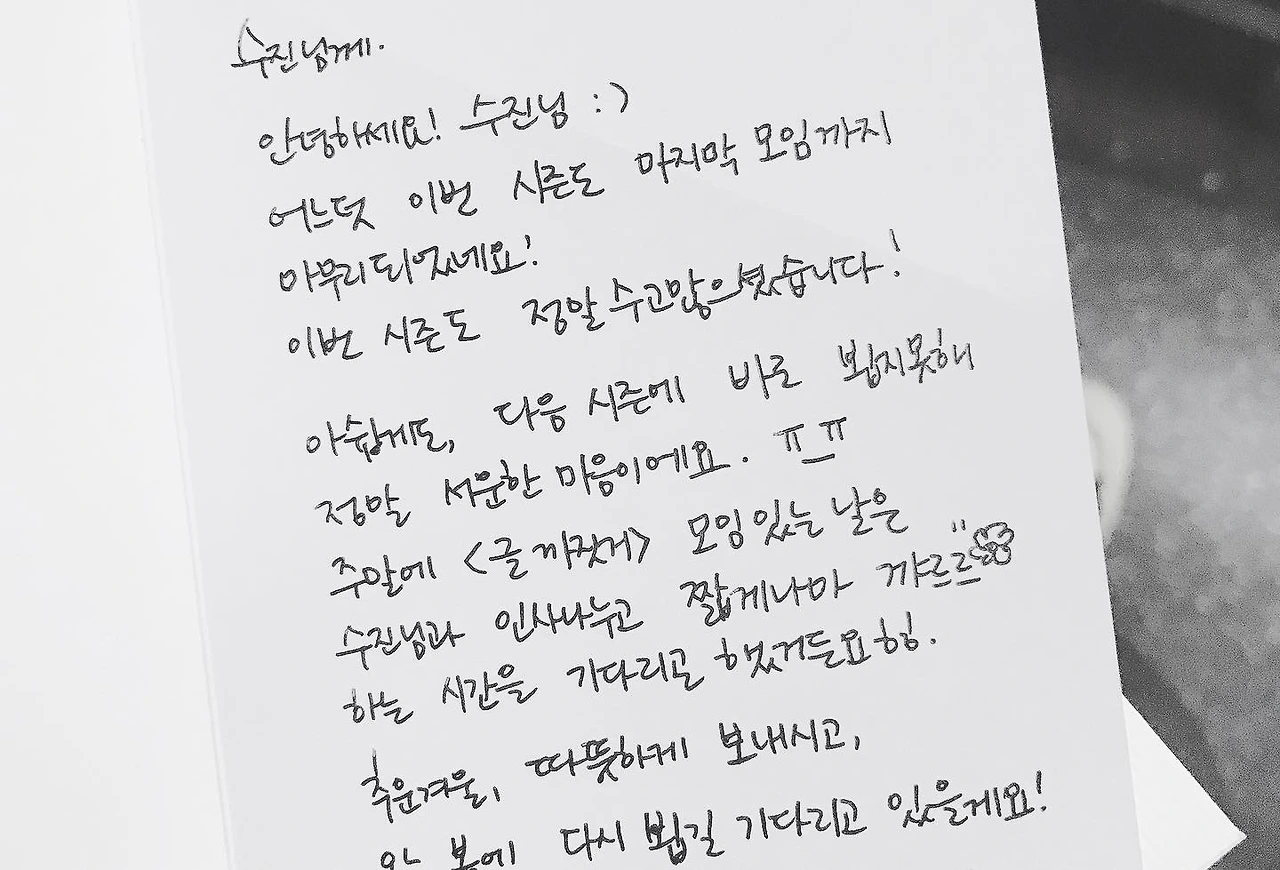 수진님께.
안녕하세요! 수진님 :)
어느덧 이번 시즌도 마지막 모임까지
마무리되었네요!
이번 시즌도 정말 수고많으셨습니다!
아쉽게도, 다음 시즌에 바로 뵙지못해
정말 서운한 마음이에요. ㅠ_ㅠ
주말에 <글까짓거> 모임있는 날은
수진님과 인사나누고 짧게나마 꺄르르"
하는 시간을 기다리곤 했었거든요 힝.
추운겨울, 따뜻하게 보내시고,
봄에 다시 뵙길 기다리고 있을게요!